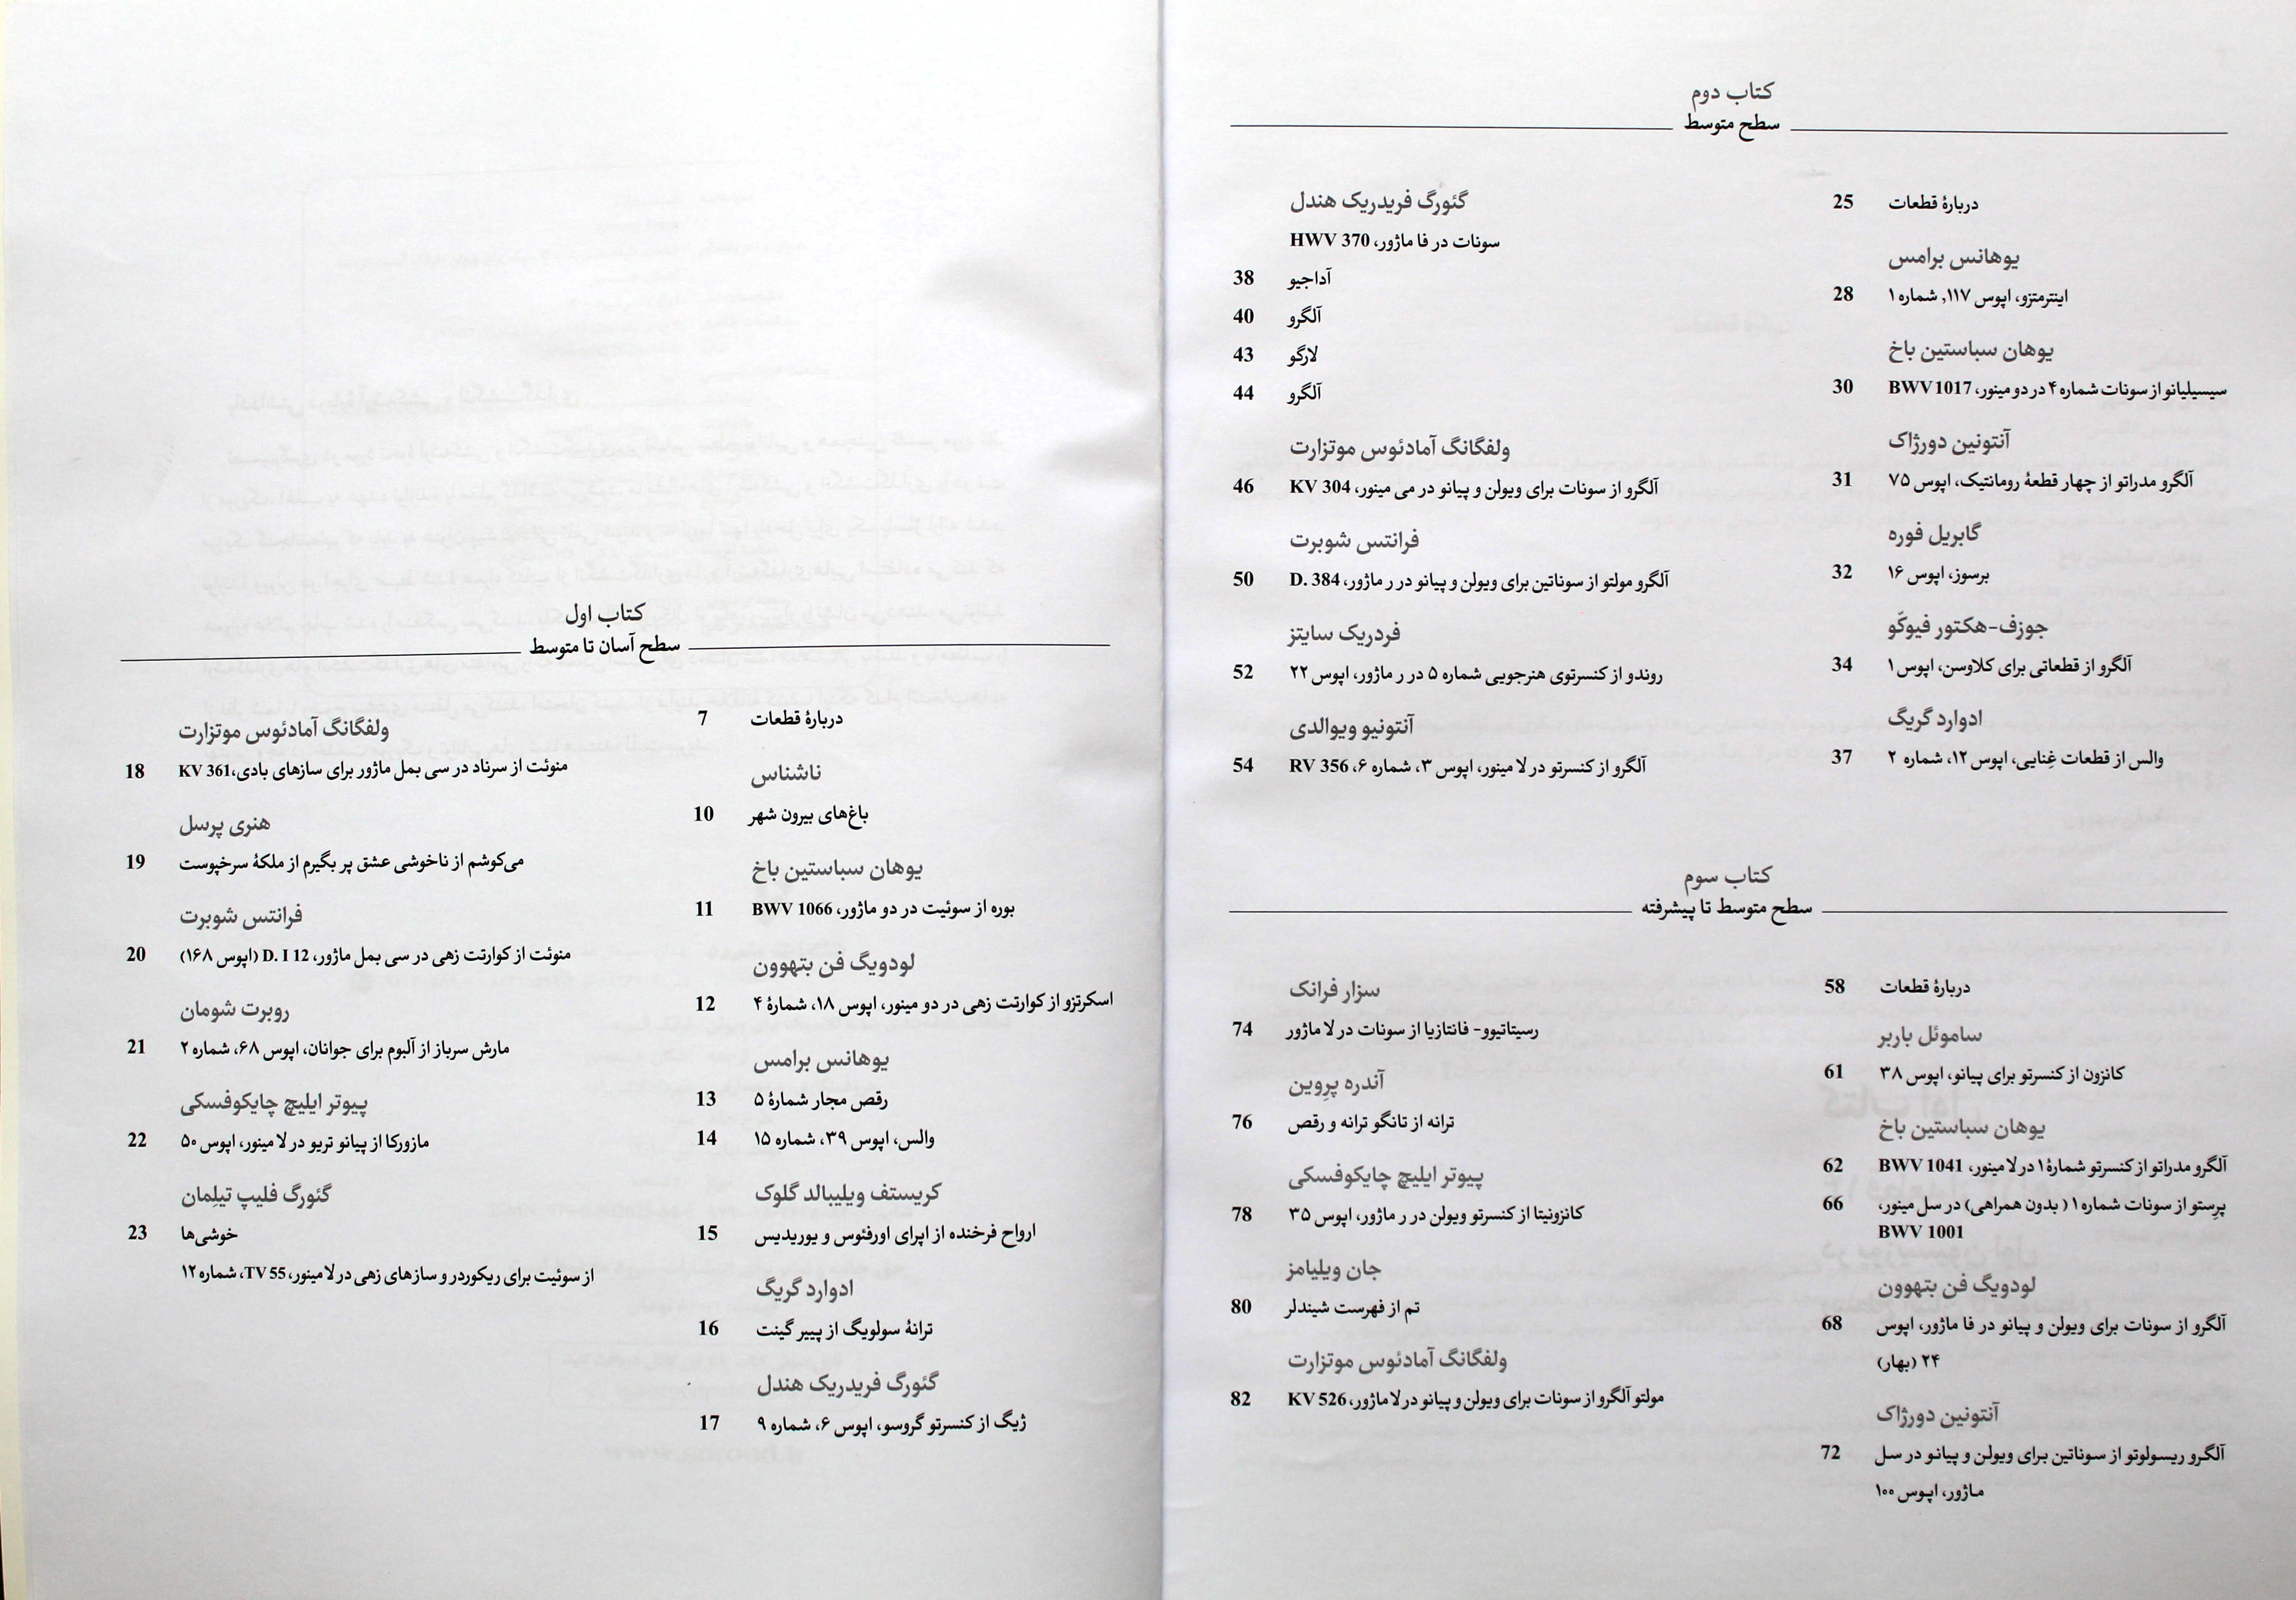 کتاب اول
سطح آسان تا متوسط
7 دربارهٔ قطعات
ناشناس
10 باغ‌های بیرون شهر
یوهان سباستین باخ
11 بوره از سوئیت در دو ماژور، BWV 1066
لودویگ فن بتهوون
12 اسکرتزو از کوارتت زهی در دو مینور، اپوس ۱۸، شمارهٔ ۴
یوهانس برامس
13 رقص مجار شمارهٔ ۵
14 والس، اپوس ۳۹، شماره ۱۵
کریستف ویلیبالد گلوک
15 ارواح فرخنده از اپرای اورفئوس و یوریدیس
ادوارد گریگ
16 ترانهٔ سولویگ از پییر گینت
گئورگ فریدریک هندل
17 ژیگ از کنسرتو گروسو، اپوس ۶، شماره ۹
ولفگانگ آمادئوس موتزارت
18 منوئت از سرناد در سی بمل ماژور برای سازهای بادی،KV 361
هنری پرسل
19 می‌کوشم از ناخوشی عشق پر بگیرم از ملکهٔ سرخپوست
فرانتس شوبرت
20 منوئت از کوارتت زهی در سی بمل ماژور، D. I 12 (اپوس ۱۶۸)
روبرت شومان
21 مارش سرباز از آلبوم برای جوانان، اپوس ۶۸، شماره ۲
پیوتر ایلیچ چایکوفسکی
22 مازورکا از پیانو تریو در لا مینور، اپوس ۵۰
گئورگ فلیپ تیلِمان
23 خوشی‌ها
از سوئیت برای ریکوردر و سازهای زهی در لا مینور، TV 55، شماره ۱۲
کتاب دوم
سطح متوسط
25 دربارهٔ قطعات
یوهانس برامس
28 اینترمتزو، اپوس ۱۱۷, شماره ۱
یوهان سباستین باخ
30 سیسیلیانو از سونات شماره ۴ در دو مینور، BWV 1017
آنتونین دورژاک
31 آلگرو مدراتو از چهار قطعهٔ رومانتیک، اپوس ۷۵
گابریل فوره
32 برسوز، اپوس ۱۶
جوزف-هکتور فیوکّو
34 آلگرو از قطعاتی برای کلاوسن، اپوس ۱
ادوارد گریگ
37 والس از قطعات غِنایی، اپوس ۱۲، شماره ۲
گئورگ فریدریک هندل
سونات در فا ماژور، HWV 370
38 آداجیو
40 آلگرو
43 لارگو
44 آلگرو
ولفگانگ آمادئوس موتزارت
46 آلگرو از سونات برای ویولن و پیانو در می مینور، KV 304
فرانتس شوبرت
50 آلگرو مولتو از سوناتین برای ویولن و پیانو در ر ماژور، D. 384
فردریک سایتز
52 روندو از کنسرتوی هنرجویی شماره ۵ در ر ماژور، اپوس ۲۲
آنتونیو ویوالدی
54 آلگرو از کنسرتو در لا مینور، اپوس ۳، شماره ۶، RV 356
کتاب سوم
سطح متوسط تا پیشرفته
58 دربارهٔ قطعات
ساموئل باربر
61 کانزون از کنسرتو برای پیانو، اپوس ۳۸
یوهان سباستین باخ
62 آلگرو مدراتو از کنسرتو شمارهٔ ۱ در لا مینور، BWV 1041
66 پرِستو از سونات شماره ۱ ( بدون همراهی) در سل مینور،
BWV 1001
لودویگ فن بتهوون
68 آلگرو از سونات برای ویولن و پیانو در فا ماژور، اپوس
۲۴ (بهار)
آنتونین دورژاک
72 آلگرو ریسولوتو از سوناتین برای ویولن و پیانو در سل
ماژور، اپوس ۱۰۰
سزار فرانک
74 رسیتاتیوو- فانتازیا از سونات در لا ماژور
آندره پرِوین
76 ترانه از تانگو ترانه و رقص
پیوتر ایلیچ چایکوفسکی
78 کانزونیتا از کنسرتو ویولن در ر ماژور، اپوس ۳۵
جان ویلیامز
80 تم از فهرست شیندلر
ولفگانگ آمادئوس موتزارت
82 مولتو آلگرو از سونات برای ویولن و پیانو در لا ماژور، KV 526